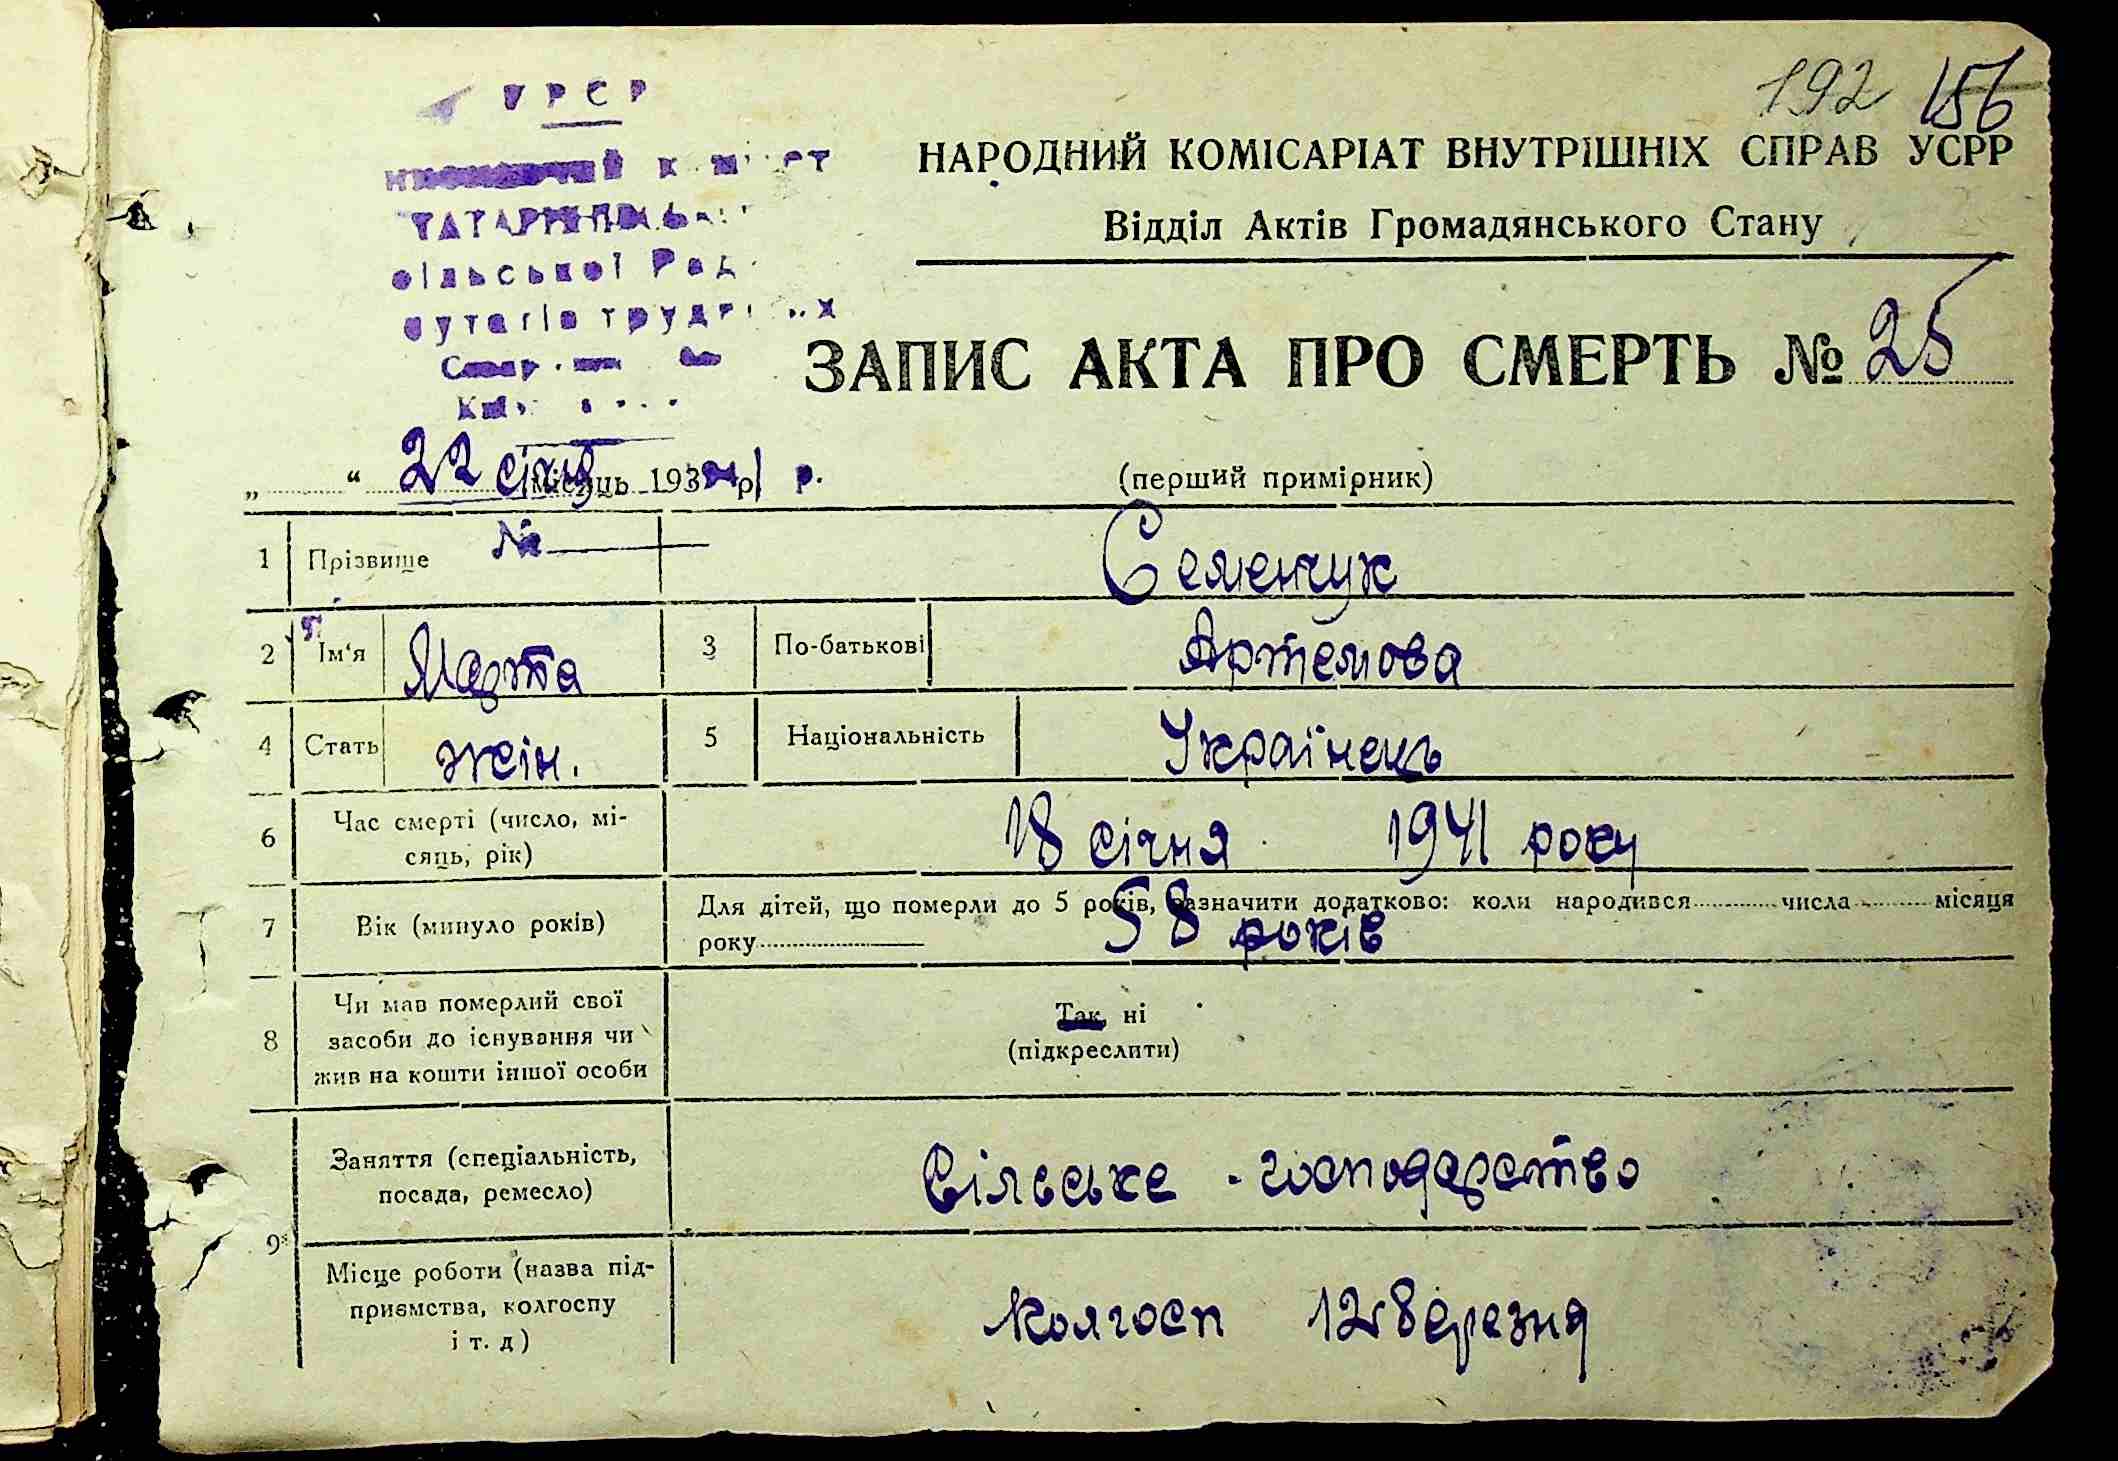 192 156
УРСР
ТАТАР
сільської Рад
НАРОДНИЙ КОМІСАРІАТ ВНУТРІШНІХ СПРАВ УСРР
Відділ Актів Громадянського Стану
ЗАПИС АКТА ПРО СМЕРТЬ № 25
„ “ 22 січня місяць 193 41 р.
(перший примірник)
№
1 Прізвище Семенчук
2 Ім'я Марта 3 По-батькові Артемова
4 Стать жін. 5 Національність Українець
6 Час смерті (число, мі-
сяць, рік) 18 січня 1941 року
7 Вік (минуло років) Для дітей, що померли до 5 років, зазначити додатково: коли народився числа місяця
року 58 років
8 Чи мав померлий свої
засоби до існування чи
жив на кошти іншої особи
Так, ні
(підкреслити)
9 Заняття (спеціальність,
посада, ремесло) Сільське - господарство
Місце роботи (назва під-
приємства, колгоспу
і т. д) Колгосп 12 Березня